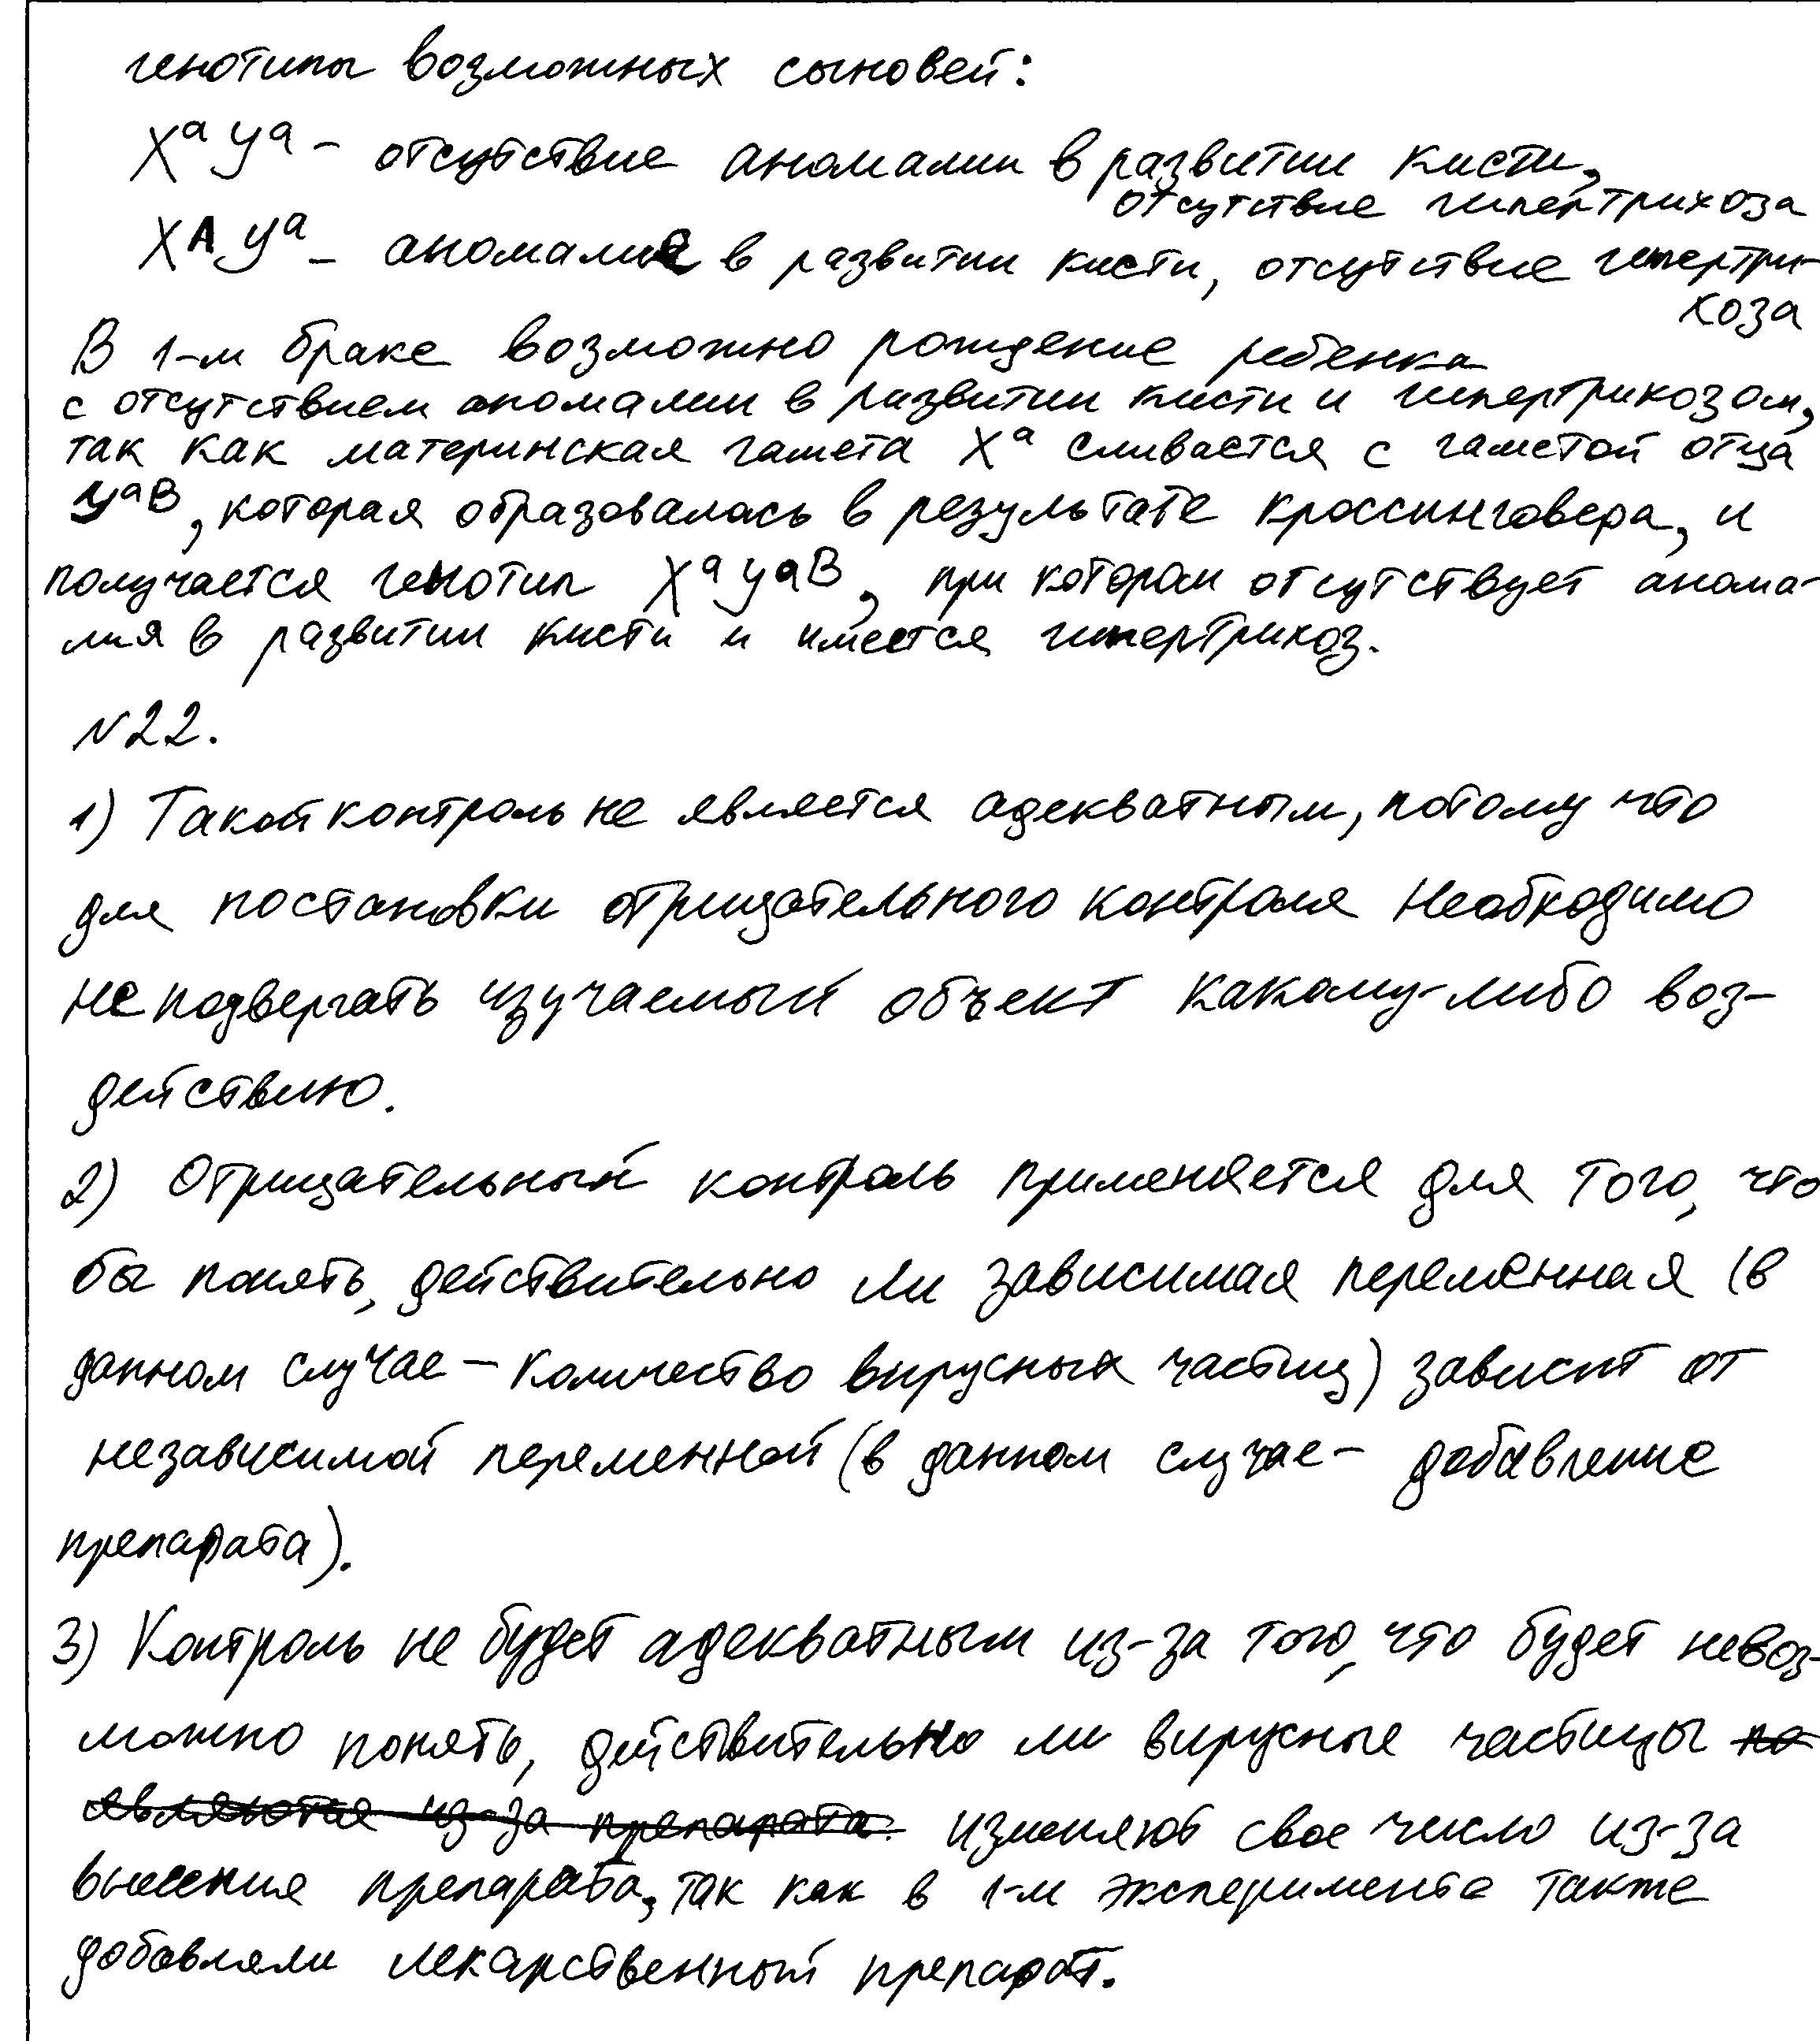 генотипы возможных сыновей:
XᵃYᵃ - отсутствие аномалии в развитии кисти,
отсутствие гипертрихоза
XᴬYᵃ - аномалия в развитии кисти, отсутствие гипертри-
хоза
В 1-м браке возможно рождение ребенка
с отсутствием аномалии в развитии кисти и гипертрихозом,
так как материнская гамета Xᵃ сливается с гаметой отца
Yᵃᴮ, которая образовалась в результате кроссинговера, и
получается генотип XᵃYᵃᴮ, при котором отсутствует анома-
лия в развитии кисти и имеется гипертрихоз.
N22.
1) Такой контроль не является адекватным, потому что
для постановки отрицательного контроля необходимо
не подвергать изучаемый объект какому-либо воз-
действию.
2) Отрицательный контроль применяется для того, что
бы понять, действительно ли зависимая переменная (в
данном случае - количество вирусных частиц) зависит от
независимой переменной (в данном случае - добавление
препарата).
3) Контроль не будет адекватным из-за того, что будет невоз-
можно понять, действительно ли вирусные частицы по
являются из-за препарата. изменяют свое число из-за
внесения препарата, так как в 1-м эксперименте также
добавляли лекарственный препарат.